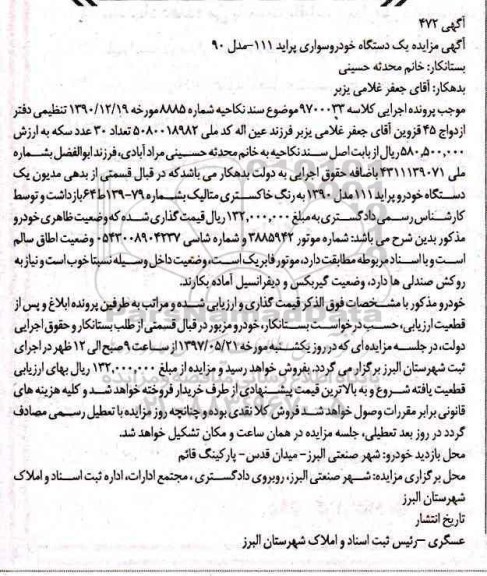 آگهی ۴۷۲
آگهی مزایده یک دستگاه خودروسواری پراید ۱۱۱-مدل ۹۰
بستانکار: خانم محدثه حسینی
بدهکار: آقای جعفر غلامی یزبر
موجب پرونده اجرایی کلاسه ۹۷۰۰۰۳۳ موضوع سند نکاحیه شماره ۸۸۸۵ مورخه ۱۳۹۰/۱۲/۱۹ تنظیمی دفتر
ازدواج ۴۵ قزوین آقای جعفر غلامی یزبر فرزند عین اله کد ملی ۵۰۸۰۰۱۸۹۸۲ تعداد ۳۰ عدد سکه به ارزش
۵۸۰,۵۰۰,۰۰۰ ریال از بابت اصل سند نکاحیه به خانم محدثه حسینی مرادآبادی، فرزند ابوالفضل بشماره
ملی ۴۳۱۱۱۳۹۰۷۱ باضافه حقوق اجرایی به دولت بدهکار می باشد که در قبال قسمتی از بدهی مدیون یک
دستگاه خودرو پراید ۱۱۱ مدل ۱۳۹۰ به رنگ خاکستری متالیک بشماره ۷۹-۱۳۹ط۶۴ بازداشت و توسط
کارشناس رسمی دادگستری به مبلغ ۱۳۲,۰۰۰,۰۰۰ ریال قیمت گذاری شده که وضعیت ظاهری خودرو
مذکور بدین شرح می باشد: شماره موتور ۳۸۸۵۹۴۲ و شماره شاسی ۰۵۴۳۰۰۸۹۰۴۲۳۷ وضعیت اطاق سالم
است و با اسناد مربوطه مطابقت دارد، موتور فابریک است، وضعیت داخل وسیله نسبتا خوب است و نیاز به
روکش صندلی ها دارد، وضعیت گیربکس و دیفرانسیل آماده بکارند.
خودرو مذکور با مشخصات فوق الذکر قیمت گذاری و ارزیابی شده و مراتب به طرفین پرونده ابلاغ و پس از
قطعیت ارزیابی، حسب درخواست بستانکار، خودرو مزبور در قبال قسمتی از طلب بستانکار و حقوق اجرایی
دولت، در جلسه مزایده ای که در روز یکشنبه مورخه ۱۳۹۷/۰۵/۲۱ از ساعت ۹ صبح الی ۱۲ ظهر در اجرای
ثبت شهرستان البرز برگزار می گردد. بفروش خواهد رسید و مزایده از مبلغ ۱۳۲,۰۰۰,۰۰۰ ریال بهای ارزیابی
قطعیت یافته شروع و به بالاترین قیمت پیشنهادی از طرف خریدار فروخته خواهد شد و کلیه هزینه های
قانونی برابر مقررات وصول خواهد شد فروش کلا نقدی بوده و چنانچه روز مزایده با تعطیل رسمی مصادف
گردد در روز بعد تعطیلی، جلسه مزایده در همان ساعت و مکان تشکیل خواهد شد.
محل بازدید خودرو: شهر صنعتی البرز- میدان قدس- پارکینگ قائم
محل برگزاری مزایده: شهر صنعتی البرز، روبروی دادگستری، مجتمع ادارات، اداره ثبت اسناد و املاک
شهرستان البرز
تاریخ انتشار
عسگری -رئیس ثبت اسناد و املاک شهرستان البرز